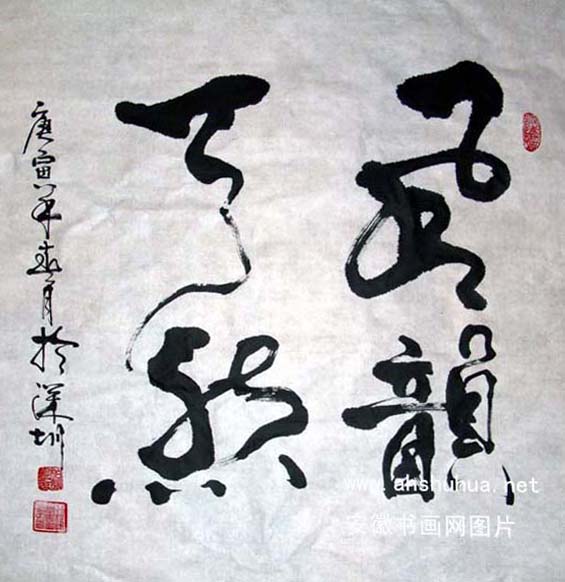 風韻
天然
庚寅年春月於深圳
www.ahshuhua.net
安徽书画网图片